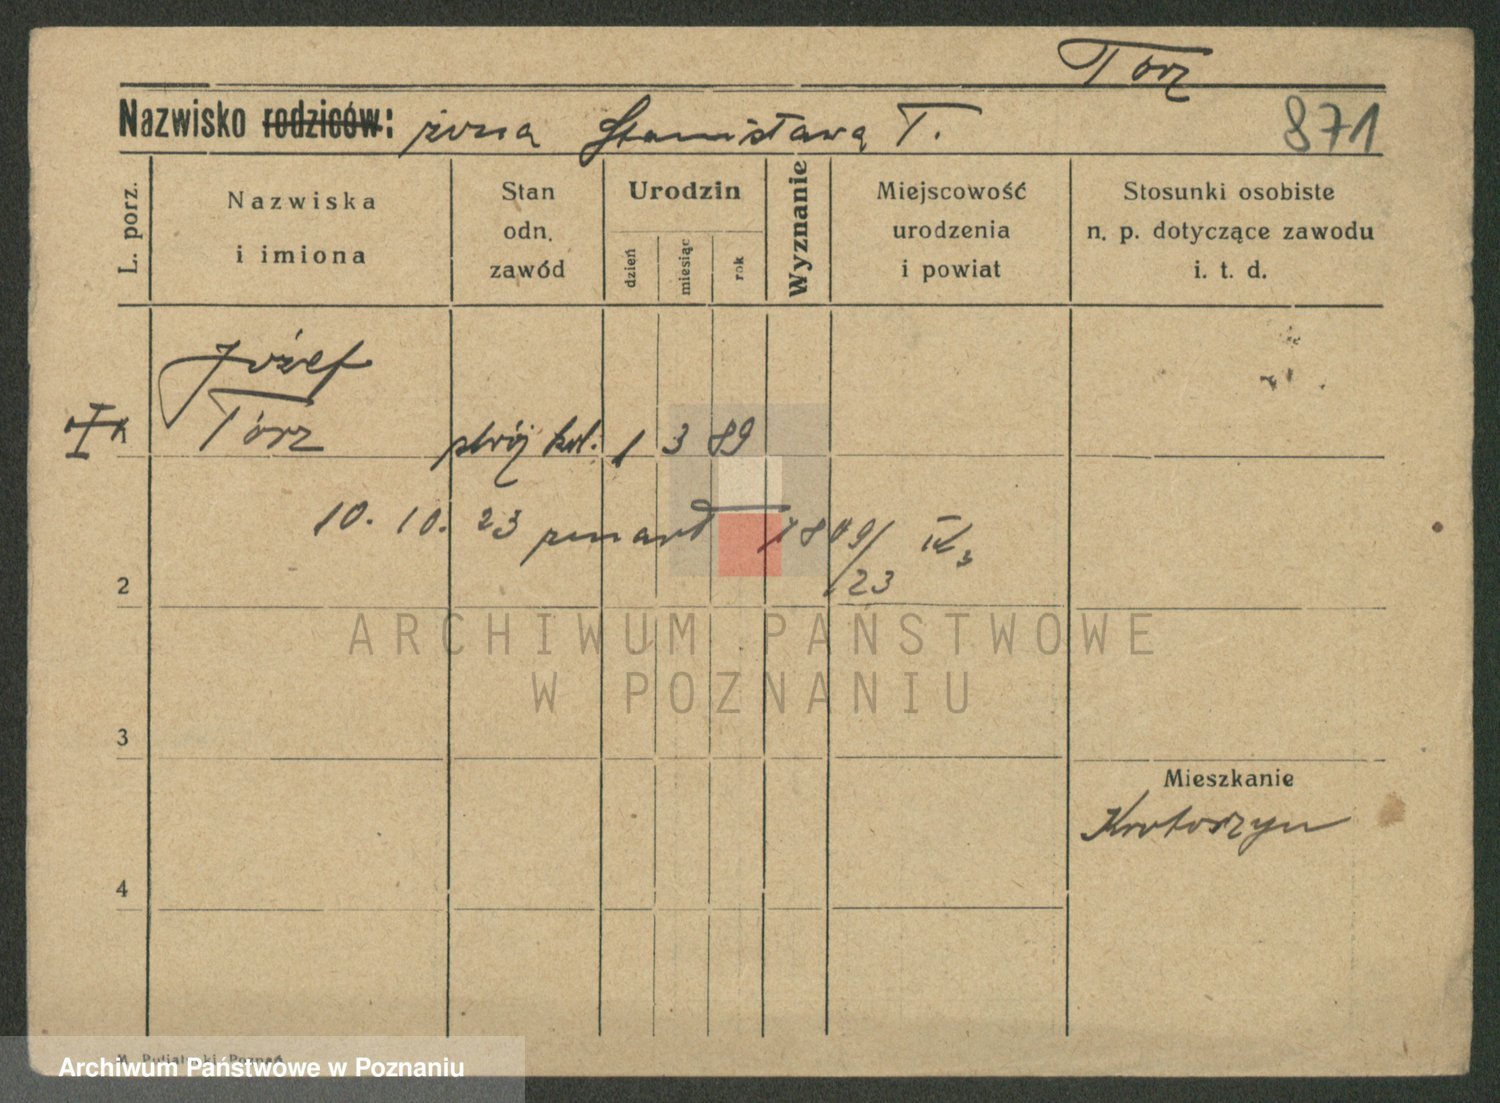 Torz
Nazwisko rodziców: żona Stanisława T.
871
L. porz.
Nazwiska
i imiona
Stan
odn.
zawód
Urodzin
dzień
miesiąc
rok
Wyznanie
Miejscowość
urodzenia
i powiat
Stosunki osobiste
n. p. dotyczące zawodu
i. t. d.
Józef
Tórz
stróż kol. 1 3 89
10. 10. 23 zmarł 1809/23 IV
2
ARCHIWUM PAŃSTWOWE
W POZNANIU
3
Mieszkanie
Krotoszyn
4
Archiwum Państwowe w Poznaniu